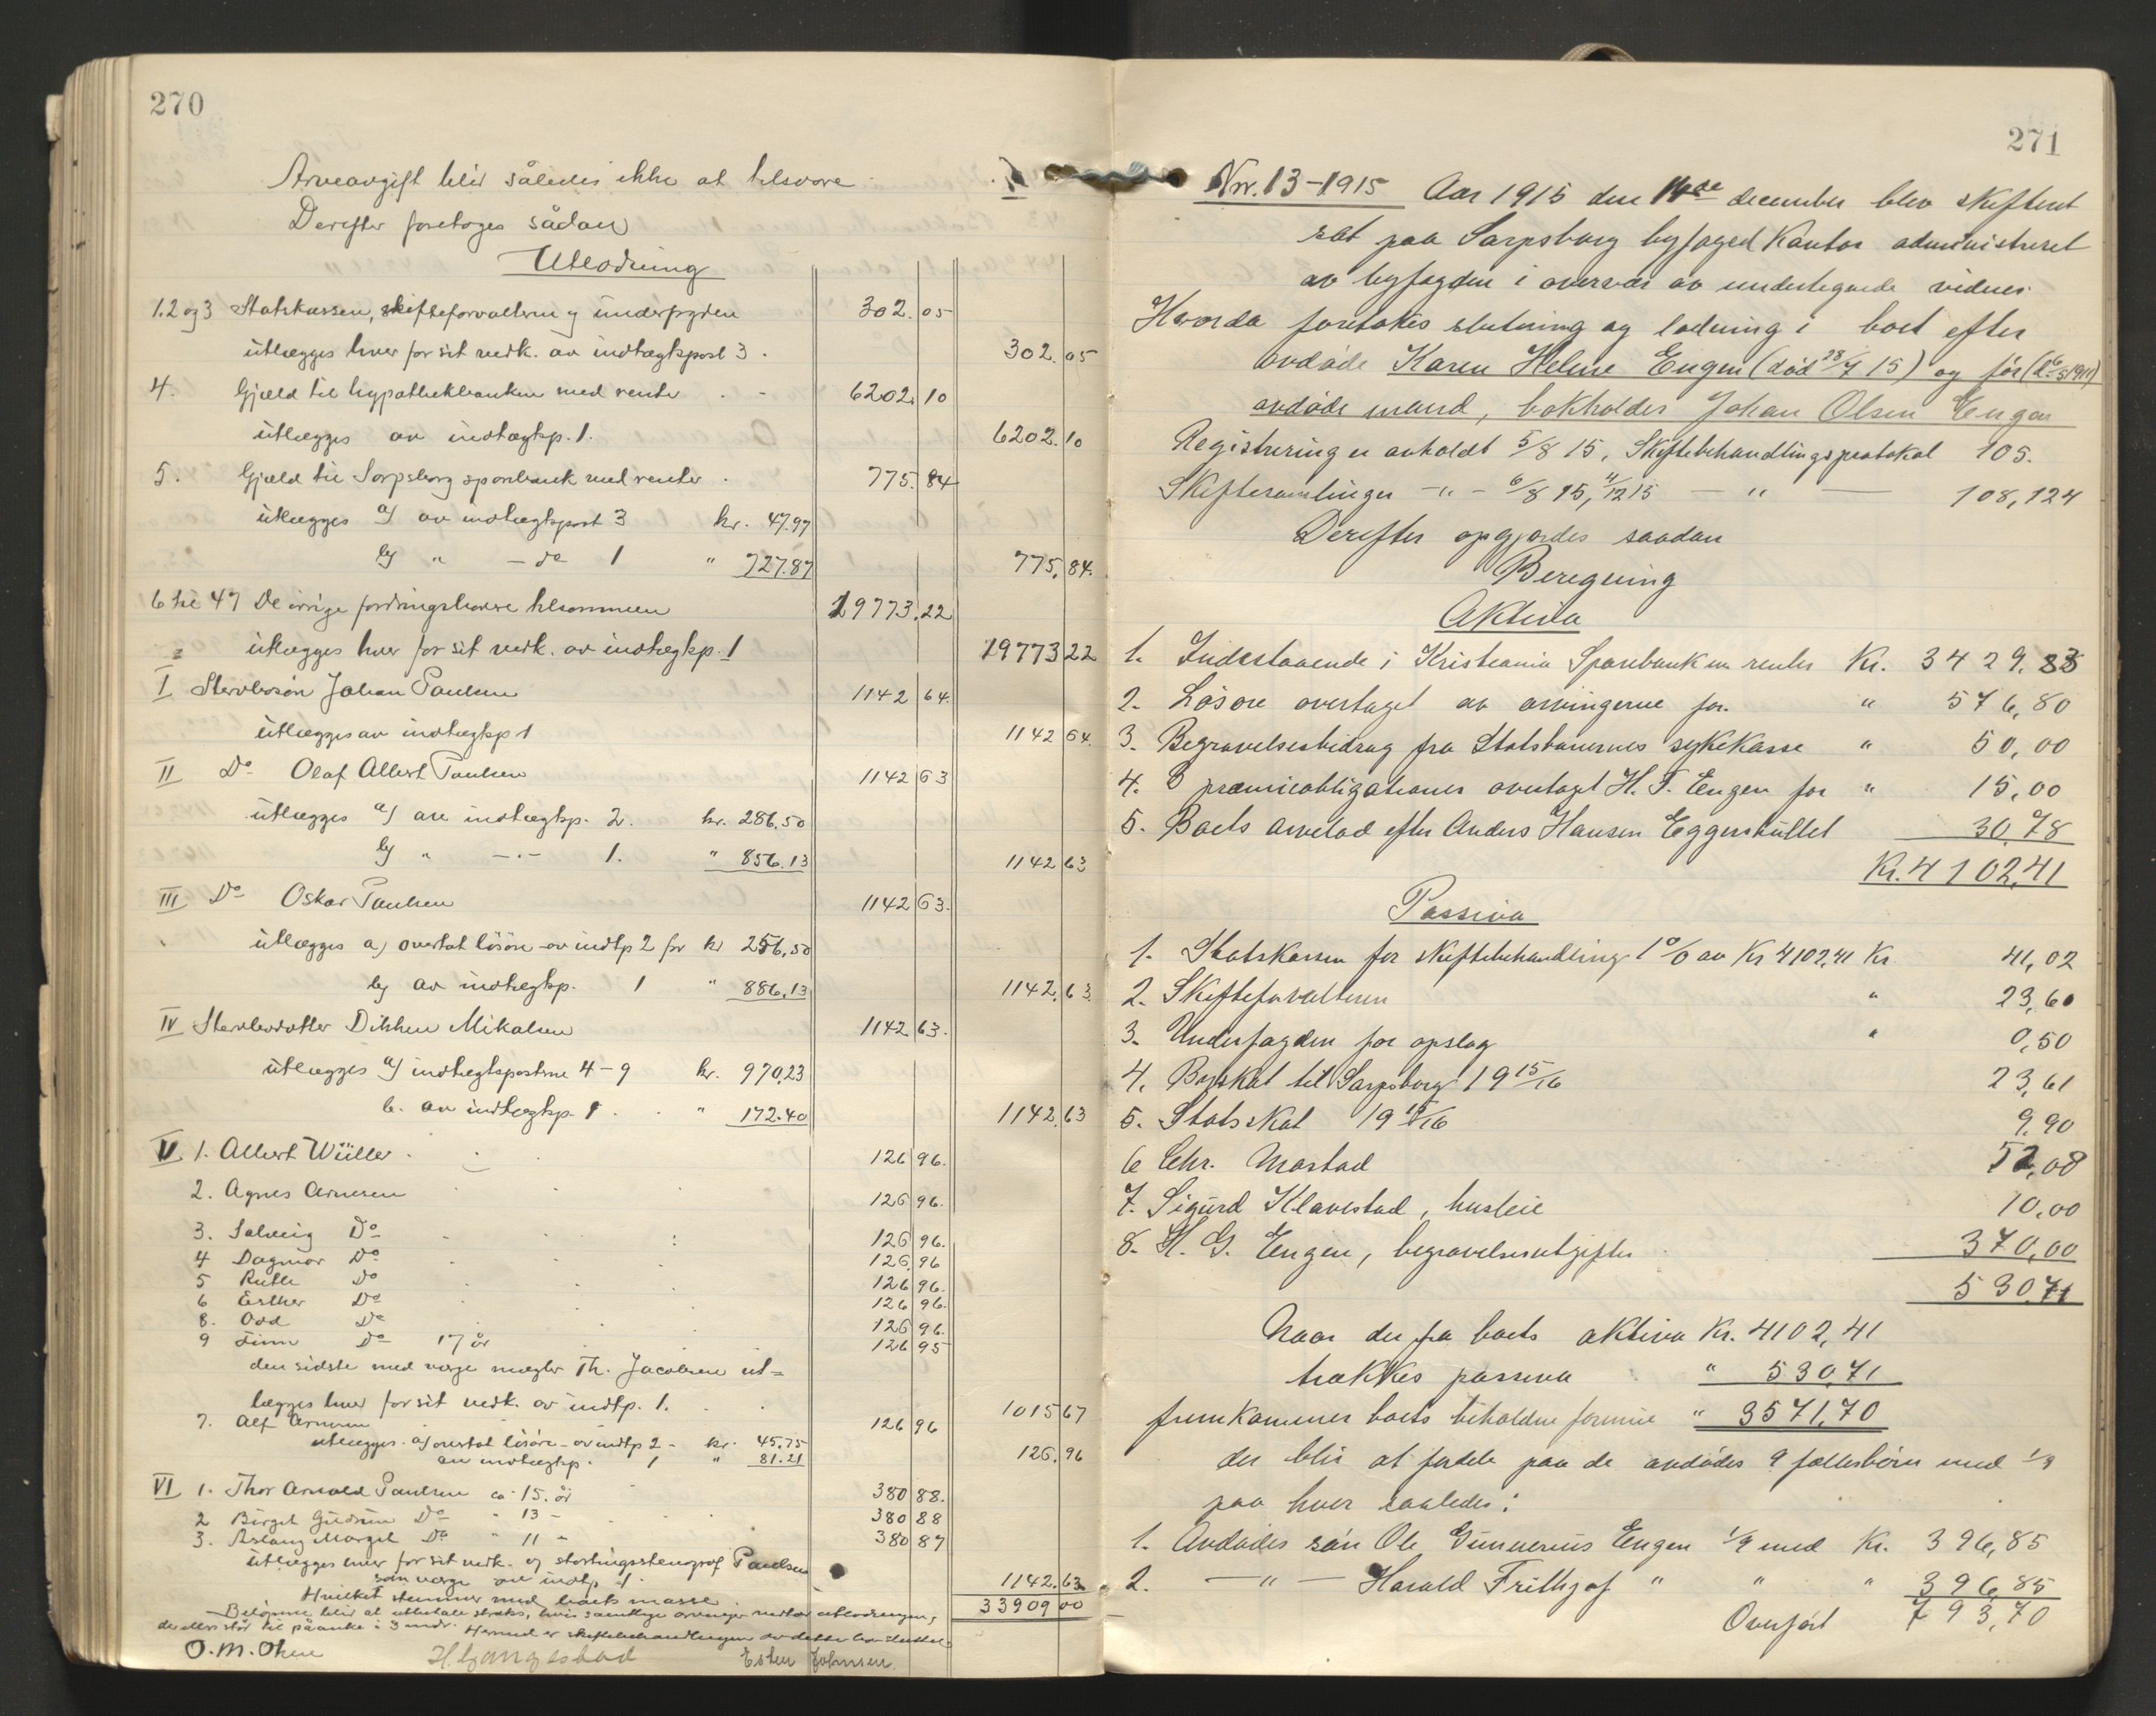 270
Arveavgift blir således ikke at tilsvare
Derefter foretoges sådan
Utlodning
1.2 og 3 Statskassen, skifteforvalteren og underfogden 302.05
utlægges hver for sit vedk. av indtægtspost 3. 302.05
4. Gjæld til hypothekbanken med rente 6202.10
utlægges av indtægtsp. 1. 6202.10
5. Gjæld til Sarpsborg sparebank med renter 775.84
utlægges a) av indtægtspost 3 kr. 47.97
b) " — do 1 " 727.87 775.84.
6 til 47 De øvrige fordringshavere tilsammen 19773.22
utlægges hver for sit vedk. av indtægtsp. 1 19773 22
I Stervbosøn Johan Paulsen 1142 64.
utlægges av indtægtsp 1 1142 64.
II Do Olaf Albert Paulsen 1142 63
utlægges a) av indtægtsp. 2. kr. 286.50
b) " —"— 1. " 856.13 1142 63
III Do Oskar Paulsen 1142 63.
utlægges a) overtat løsøre av indtp 2 for kr 256,50
b) av indtægtsp. 1 " 886,13 1142.63.
IV Stervbodatter Dikken Mikalsen 1142.63.
utlægges a) indtægtsposterne 4-9 kr. 970,23
b. av indtægtsp. 1. " 172.40 1142.63
V 1. Albert Wüller 126 96.
2. Agnes Arnesen 126 96.
3. Solveig Do 126 96.
4 Dagmar Do 126.96
5 Ruth Do 126 96.
6 Esther Do 126 96.
8. Odd Do 126 96.
9 Finn Do 17 år 126 95
den sidste med værge mægler Th. Jacobsen ut=
lægges hver for sit vedk. av indtp. 1. 1015 67
7. Alf Arnesen 126 96
utlægges a) overtat løsøre av indtp 2 - kr. 45.75
av indtægtsp. 1 " 81.21 126.96
VI 1. Thor Arnold Paulsen ca 15. år 380 88.
2 Birgit Gudrun Do " 13 - 380 88
3. Aslaug Margit Do " 11 - 380 87
utlægges hver for sit vedk. og stortingsstenograf Paulsen
som værge av indtp 1. 1142.63
Hvilket stemmer med boets masse. 33909 00
Beløpene blir at utbetale straks, hvis samtlige arvinger vedtar utlodningen,
der ellers står til påanke i 3 mdr. Hermed er skiftebehandlingen av dette bo sluttet.
O. M. Olsen H. Langestad Esten Johnsen.
271
Nr. 13-1915 Aar 1915 den 14de december blev skifteret
sat paa Sarpsborg byfoged Kontor administreret
av byfogden i overvær av undertegnede vidner.
Hvorda foretokes slutning og lodning i boet efter
avdøde Karen Helene Engen (død 28/7 15) og før
avdøde mand, bokholder Johan Olsen Engen
Registrering er avholdt 5/8 15, Skiftebehandlingsprotokol 105.
Skiftesamlinger —"— 6/8 15, 11/12 15 —"— 108,124
Derefter opgjordes saadan
Beregning
Aktiva
1. Indestaaende i Kristiania Sparebank m renter Kr. 3429.83
2. Løsøre overtaget av arvingerne for. " 576,80
3. Begravelsesbidrag fra Statsbanernes sykekasse " 50,00
4. præmieobligationer overtaget H. F. Engen for " 15,00
5. Boets arvelod efter Anders Hansen Eggershullet 30,78
Kr. 4102,41
Passiva
1. Statskassen for skiftebehandling 1% av Kr 4102,41 Kr 41,02
2. Skifteforvalteren " 23,60
3. Underfogden for opslag " 0,50
4. Byskat til Sarpsborg 1915/16 23,61
5. Statsskat 1915/16 9,90
6 Chr. Mastad 52,08
7. Sigurd Klavestad, husleie 10,00
8. H. G. Engen, begravelsesutgifter 370,00
530,71
Naar der fra boets aktiva Kr. 4102,41
trækkes passiva " 530,71
fremkommer boets beholdne formue " 3571,70
der blir at fordele paa de avdødes 9 fællesbørn med 1/9
paa hver saaledes:
1. Avdødes søn Ole Gunnerius Engen 1/9 med Kr. 396,85
2. —"— Harald Frithjof " " " 396,85
Overført 793,70